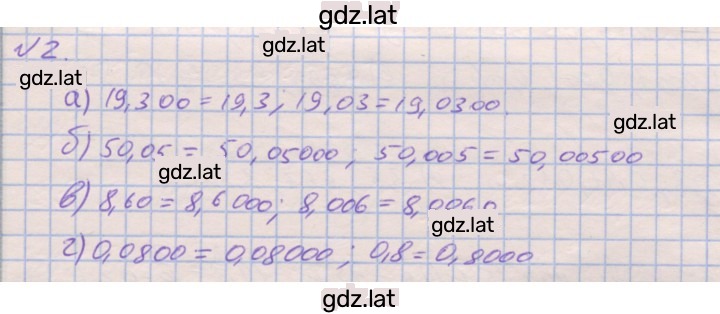 gdz.lat
√2. gdz.lat
gdz.lat
а) 19,300 = 19,3; 19,03 = 19,0300.
gdz.lat
б) 50,05 = 50,05000; 50,005 = 50,00500
gdz.lat
в) 8,60 = 8,6000; 8,006 = 8,0060
gdz.lat
г) 0,0800 = 0,08000; 0,8 = 0,8000
gdz.lat